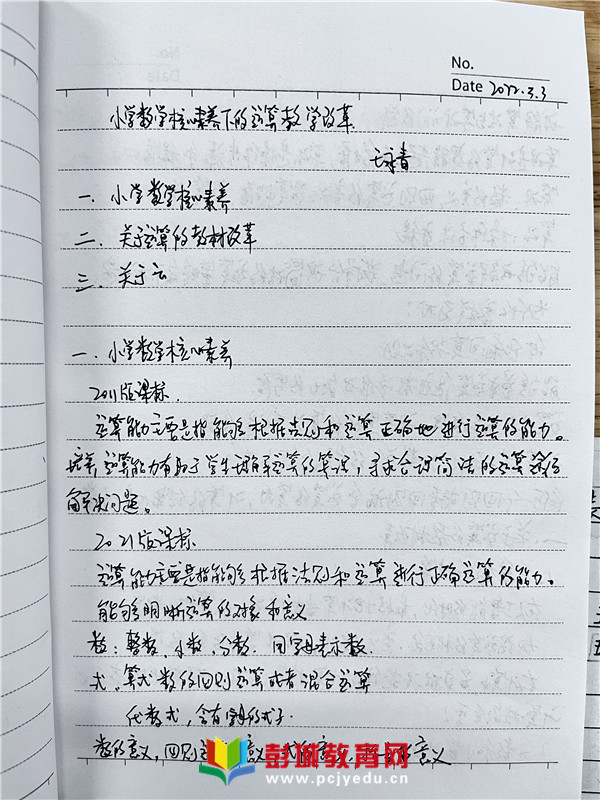 No.
Date 2022.3.3
小学数学核心素养下的运算教学改革
一、小学数学核心素养
二、关于运算的教材改革
三、关于
一、小学数学核心素养
2011版课标
运算能力主要是指能够根据法则和运算正确地进行运算的能力。
培养运算能力有助于学生理解运算的算理，寻求合理简洁的运算途径
解决问题。
2021版课标
运算能力主要是指能够根据法则和运算进行正确运算的能力。
能够明晰运算的对象和意义
数：整数、小数、分数、用字母表示数
式、算式 数的四则运算或者混合运算
代数式，含有字母的式子
数的意义，四则运 意义 意义
彭城教育网
www.pcjyedu.cn